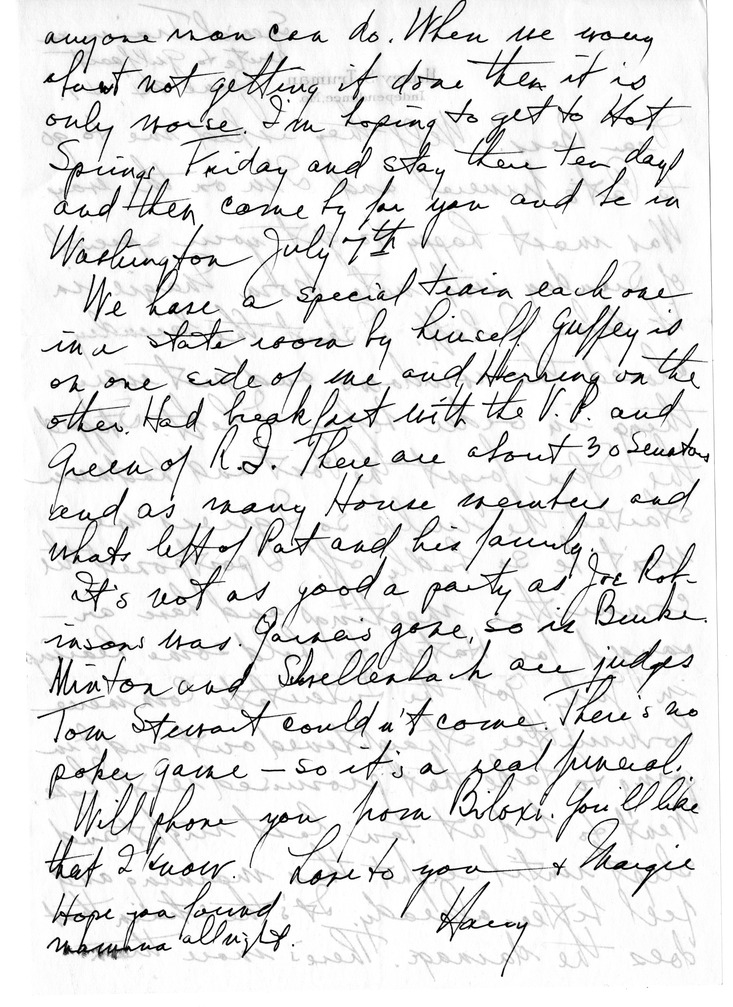 anyone man can do. When we worry
about not getting it done then it is
only worse. I'm hoping to get to Hot
Springs Friday and stay there ten days
and then come by for you and be in
Washington July 7th
We have a special train each one
in a state room by himself. Guffey is
on one side of me and Herring on the
other. Had breakfast with the V.P. and
Green of R.I. There are about 30 Senators
and as many House members and
whats left of Pat and his family.
It's not as good a party as Joe Rob-
insons was. Garner's gone, so is Burke.
Minton and Schwellenbach are judges
Tom Stewart couldn't come. There's no
poker game – so it's a real funeral.
Will phone you from Biloxi. You'll like
that I know. Love to you & Margie
Harry
Hope you found
mamma allright.